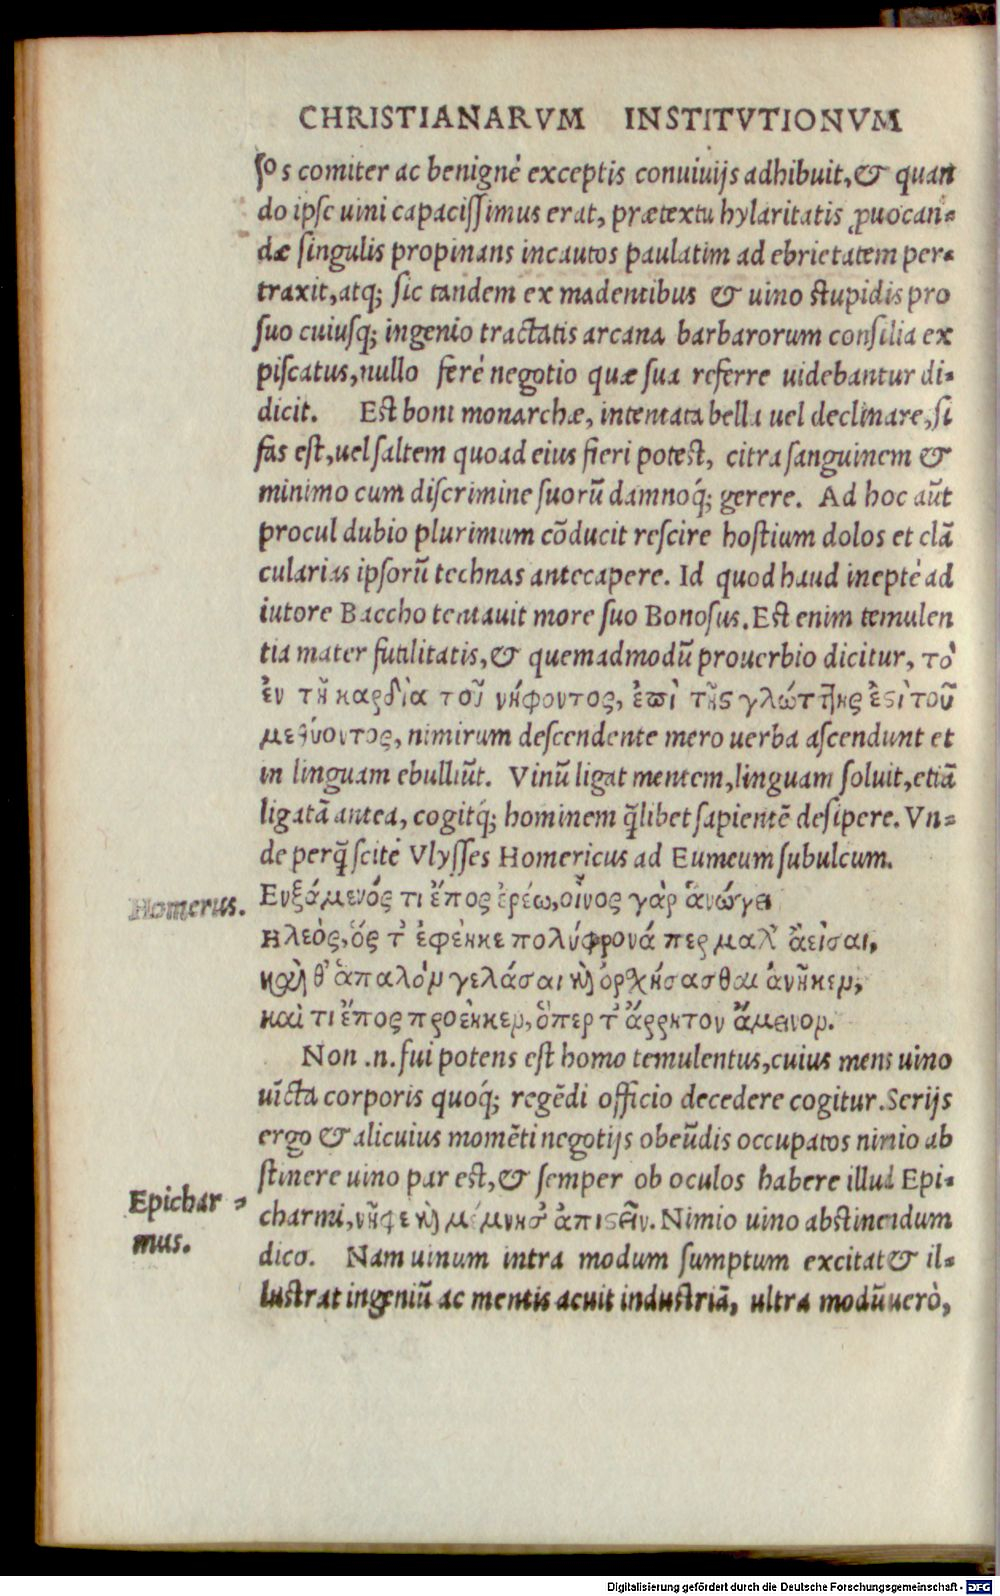 CHRISTIANARVM INSTITVTIONVM
ſos comiter ac benignè exceptis conuiuijs adhibuit, & quan
do ipſe uini capaciſſimus erat, prætextu hylaritatis ꝓuocan-
dæ ſingulis propinans incautos paulatim ad ebrietatem per-
traxit, atq; ſic tandem ex madentibus & uino ſtupidis pro
ſuo cuiuſq; ingenio tractatis arcana barbarorum conſilia ex
piſcatus, nullo ferè negotio quæ ſua referre uidebantur di-
dicit. Eſt boni monarchæ, intentata bella uel declinare, ſi
fas eſt, uel ſaltem quoad eius fieri poteſt, citra ſanguinem &
minimo cum diſcrimine ſuorũ damnoq́; gerere. Ad hoc aũt
procul dubio plurimum cõducit reſcire hoſtium dolos et clã
cularias ipſorũ technas antecapere. Id quod haud ineptè ad
iutore Baccho tentauit more ſuo Bonoſus. Eſt enim temulen
tia mater futilitatis, & quemadmodũ prouerbio dicitur, τὸ
ἐν τῇ καρδίᾳ τοῦ νήφοντος, ἐπὶ τῆς γλώττης ἐστὶ τοῦ
μεθύοντος, nimirum deſcendente mero uerba aſcendunt et
in linguam ebulliũt. Vinũ ligat mentem, linguam ſoluit, etiã
ligatã antea, cogitq́; hominem q̃libet ſapientẽ deſipere. Vn-
de perq̃ ſcitè Vlyſſes Homericus ad Eumeum ſubulcum.
Homerus.
Ευξάμενός τι ἔπος ἐρέω, οἶνος γὰρ ἀνώγει
Ηλεὸς, ὅς τ' ἐφέηκε πολύφρονά περ μαλ' ἀεῖσαι,
καὶ θ' ἁπαλὸν γελάσαι καὶ ὀρχήσασθαι ἀνῆκεν,
καὶ τι ἔπος προέηκεν, ὅπερ τ' ἄρρητον ἄμεινον.
Non .n. ſui potens eſt homo temulentus, cuius mens uino
uicta corporis quoq́; regẽdi officio decedere cogitur. Serijs
ergo & alicuius momẽti negotijs obeũdis occupatos nimio ab
ſtinere uino par eſt, & ſemper ob oculos habere illud Epi-
Epichar-
mus.
charmi, νῆφε καὶ μέμνησ' ἀπιστεῖν. Nimio uino abſtinendum
dico. Nam uinum intra modum ſumptum excitat & il-
luſtrat ingeniũ ac mentis acuit induſtriã, ultra modũ uerò,
Digitalisierung gefördert durch die Deutsche Forschungsgemeinschaft - DFG